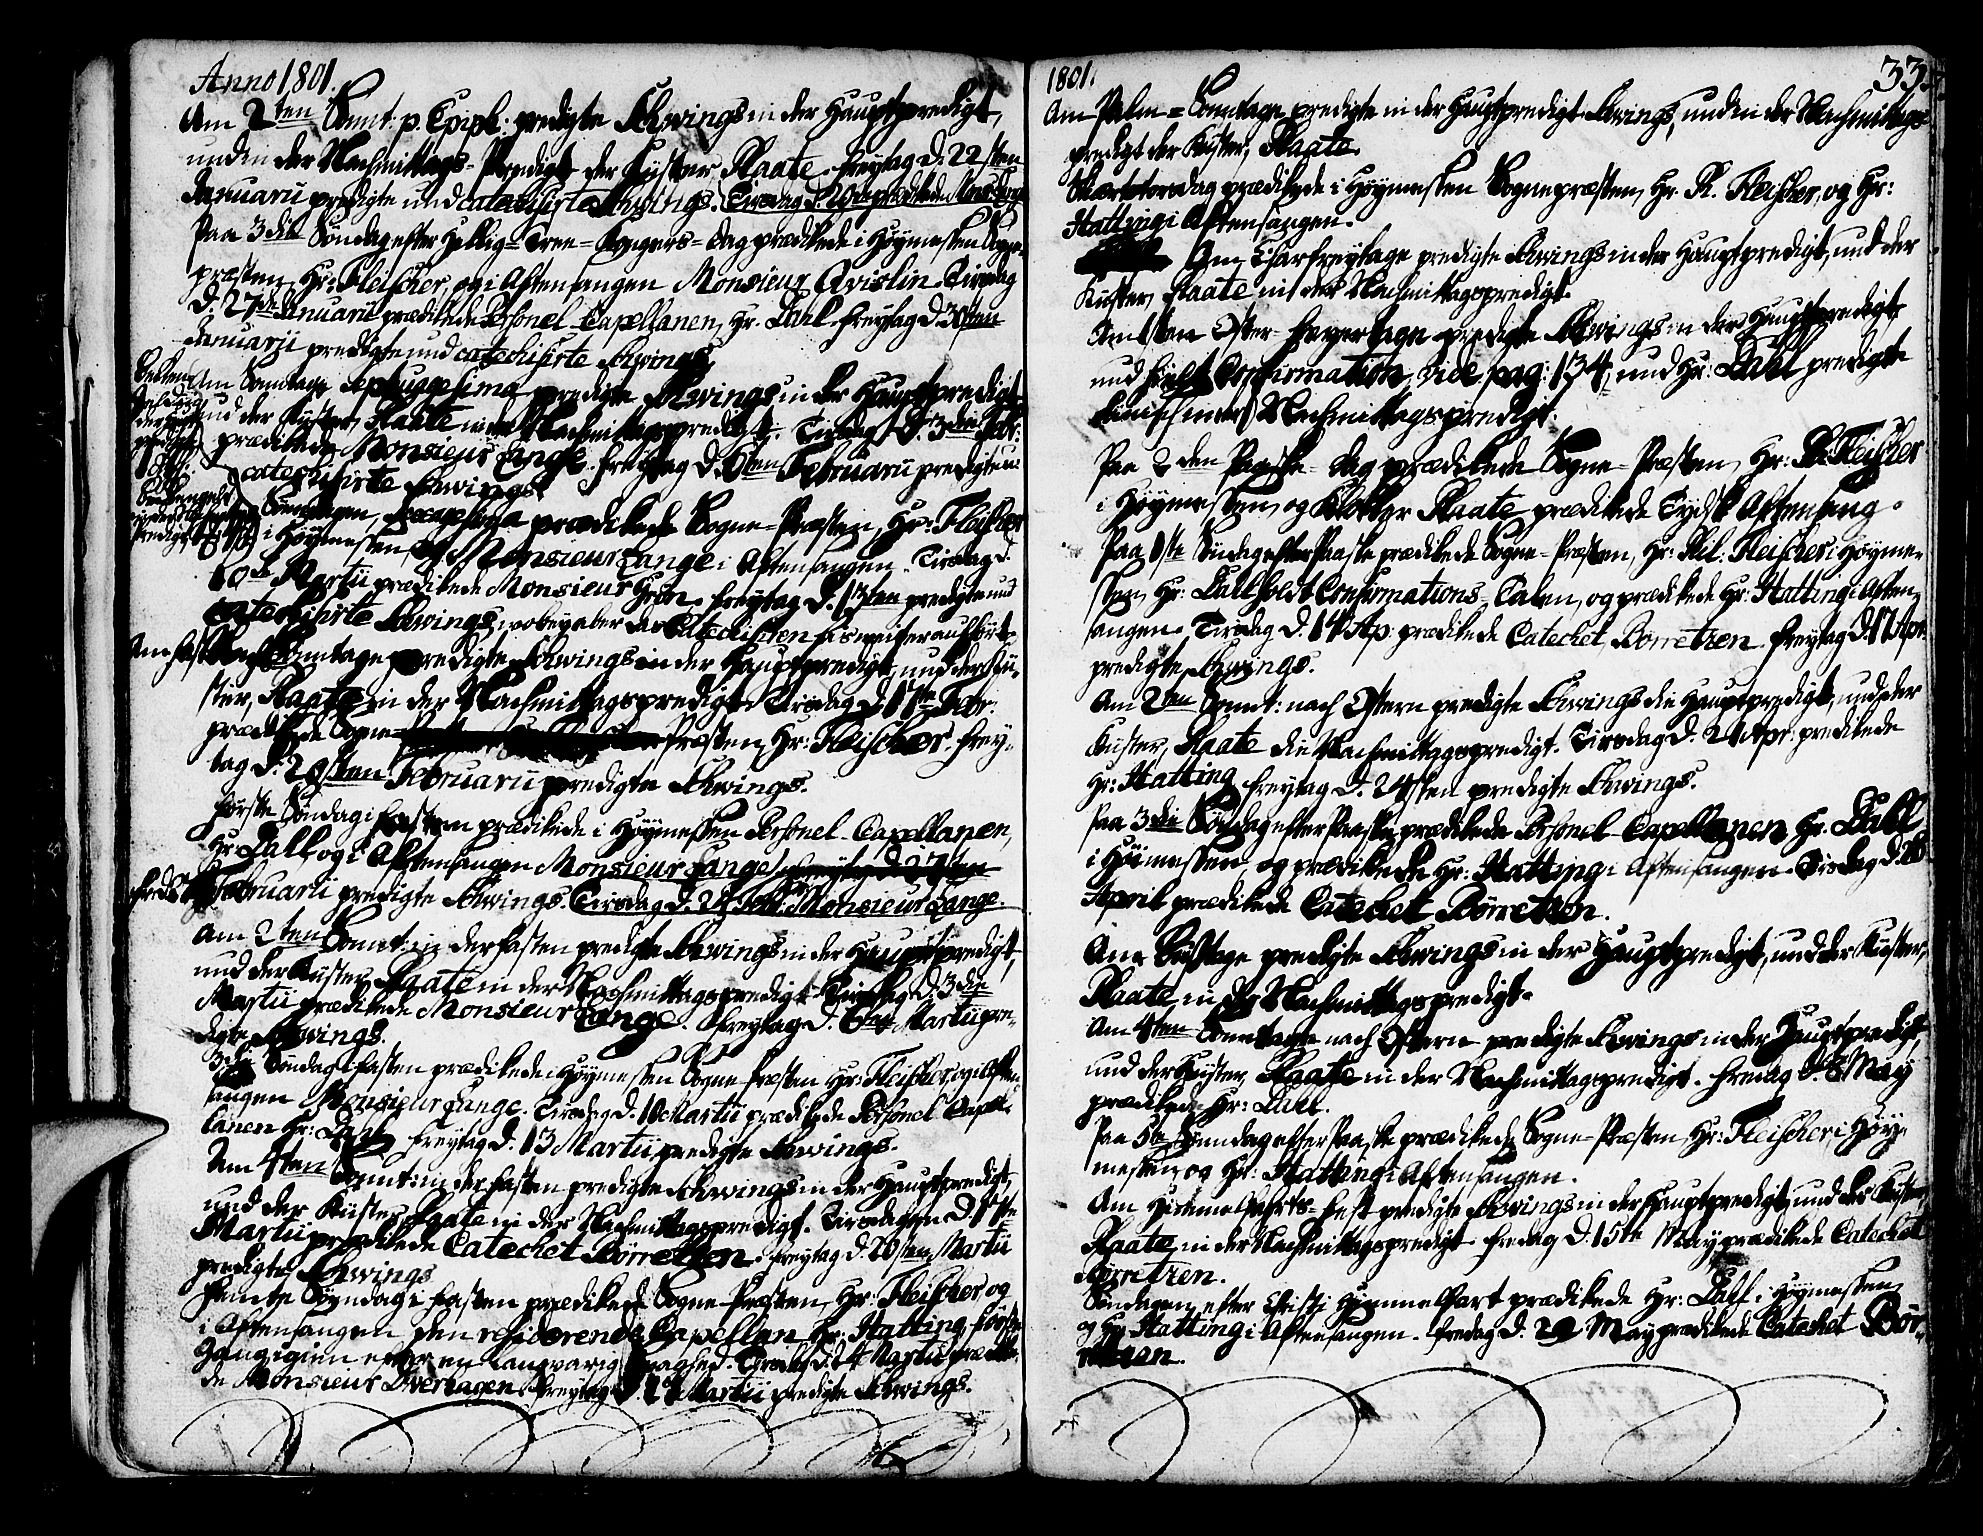 Anno 1801.
Am 2ten Sonnt: p. Epiph: predigte Ahrings in der Hauptpredigt,
und in der Nachmittags-Predigt der Küster, Plaate. Freytag d. 22sten
Januarii predigte und catechisirte Ahrings. Tirsdag d. 20 prædikede
Paa 3die Søndag efter Hellig-Tree-Kongers-dag prædikede i Høymessen Sogne-
præsten, Hr: Fleischer, og i Aftensangen Monsieur Qvislin. Tirsdag
d. 27de Januarii prædikede Personel-Capellanen, Hr. Dahl. Freytag d. 30sten
Januarii predigte und catechisirte Ahrings.
Am Sonntage Septuagesima predigte Ahrings in der Hauptpredigt
und der Küster, Plaate in der Nachmittagspredigt. Tirsdag d. 3die Febr:
prædikede Monsieur Lange. Freytag d. 6ten Februarii predigte u:
catechisirte Ahrings.
Søndagen, Sexagesima prædikede Sogne-Præsten, Hr: Fleischer
i Høymessen, og Monsieur Lange i Aftensangen. Tirsdag d.
10de Martii prædikede Monsieur Freytag d. 13ten predigte und
catechisirte Ahrings, wobey aber das Catechisiren
Am Fastnachts Sonntage predigte Ahrings in der Hauptpredigt, und der Kü-
ster, Plaate in der Nachmittagspredigt. Tirsdag d. 17de Febr:
prædikede Sogne-Præsten, Hr: Fleischer. Frey-
tag d. 20sten Februarii predigte Ahrings.
Første Søndag i Fasten prædikede i Høymessen Personel-Capellanen,
Hr. Dahl, og i Aftensangen Monsieur Lange. Freytag d. 27sten
Februarii predigte Ahrings. Tirsdag d. 24 Febr: Monsieur Lange.
Am 2ten Sonnt: in der Fasten predigte Ahrings in der Hauptpredigt,
und der Küster, Plaate in der Nachmittagspredigt. Tirsdag d. 3die
Martii prædikede Monsieur Lange. Freytag d. 6ten Martii pre-
digte Ahrings.
3die Søndag i Fasten prædikede i Høymessen Sogne-Præsten Hr: Fleischer, og i Aften-
sangen Monsieur Lange. Tirsdag d. 10 Martii prædikede Personel Capel-
lanen Hr: Dahl. Freytag d. 13 Martii predigte Ahrings.
Am 4ten Sonnt: in der Fasten predigte Ahrings in der Hauptpredigt,
und der Küster Plaate in der Nachmittagspredigt. Tirsdagen d. 17de
Martii prædikede Catechet Børretzen. Freytag d. 20sten Martii
predigte Ahrings.
Femte Søndag i Fasten prædikede Sogne-Præsten, Hr: Fleischer, og
i Aftensangen den residerende Capellan Hr: Hatting første
Gang igien efter en langvarig Svaghed. Tirsdag d. 24 Martii prædike-
de Monsieur Overtagen. Freytag d. 27 Martii predigte Ahrings.
1801.
33
Am Palm-Sonntage predigte in der Hauptpredigt Ahrings, und in der Nachmittags-
predigt der Küster, Plaate.
Skærtorsdag prædikede i Høymessen Sognepræsten, Hr. R. Fleischer, og Hr:
Hatting i Aftensangen.
Am Charfreytage predigte Ahrings in der Hauptpredigt, und der
Küster, Plaate in der Nachmittagspredigt.
Am 1sten Oster-Feyertage predigte Ahrings in der Hauptpredigt
und hielt Confirmation, vide pag: 134, und Hr: Dahl predigte
Nachmittagspredigt.
Paa 2den Paaske-dag prædikede Sogne-Præsten, Hr: R: Fleischer
i Høymessen, og Klokker Plaate prædikede Tydsk Aftensang.
Paa 1ste Søndag efter Paaske prædikede Sogne-Præsten, Hr: Fleischer i Høyme-
ssen, Hr: Dahl holdt Confirmations-Talen, og prædikede Hr: Hatting i Aften-
sangen. Tirsdag d. 14 Ap: prædikede Catechet Børretzen. Freytag d. 17 Apr:
predigte Ahrings.
Am 2ten Sonnt: nach Ostern predigte Ahrings die Hauptpredigt, und der
Küster, Plaate die Nachmittagspredigt. Tirsdag d. 21 Apr: prædikede
Hr: Hatting. Freytag d. 24sten predigte Ahrings.
Paa 3die Søndag efter Paaske prædikede Personel-Capellanen Hr. Dahl
i Høimessen, og prædikede Hr: Hatting i Aftensangen. Tirsdag d. 28
April prædikede Catechet Børretzen.
Am Bußtage predigte Ahrings in der Hauptpredigt, und der Küster,
Plaate in der Nachmittagspredigt.
Am 4ten Sonntage nach Ostern predigte Ahrings in der Hauptpredigt,
und der Küster, Plaate in der Nachmittagspredigt. Fredag d. 8 May
prædikede Hr: Dahl.
Paa 5te Søndag efter Paaske prædikede Sogne-Præsten, Hr: Fleischer i Høy-
messen, og Hr: Hatting i Aftensangen.
Am Himmelfahrts-Fest predigte Ahrings in der Hauptpredigt, und der Küster,
Plaate in der Nachmittagspredigt. Fredag d. 15te May prædikede Catechet
Børretzen.
Søndagen efter Christi Himmelfart prædikede Hr: Dahl i Høymessen,
og Hr: Hatting i Aftensangen. Fredag d. 22 May prædikede Catechet Bør-
retzen.